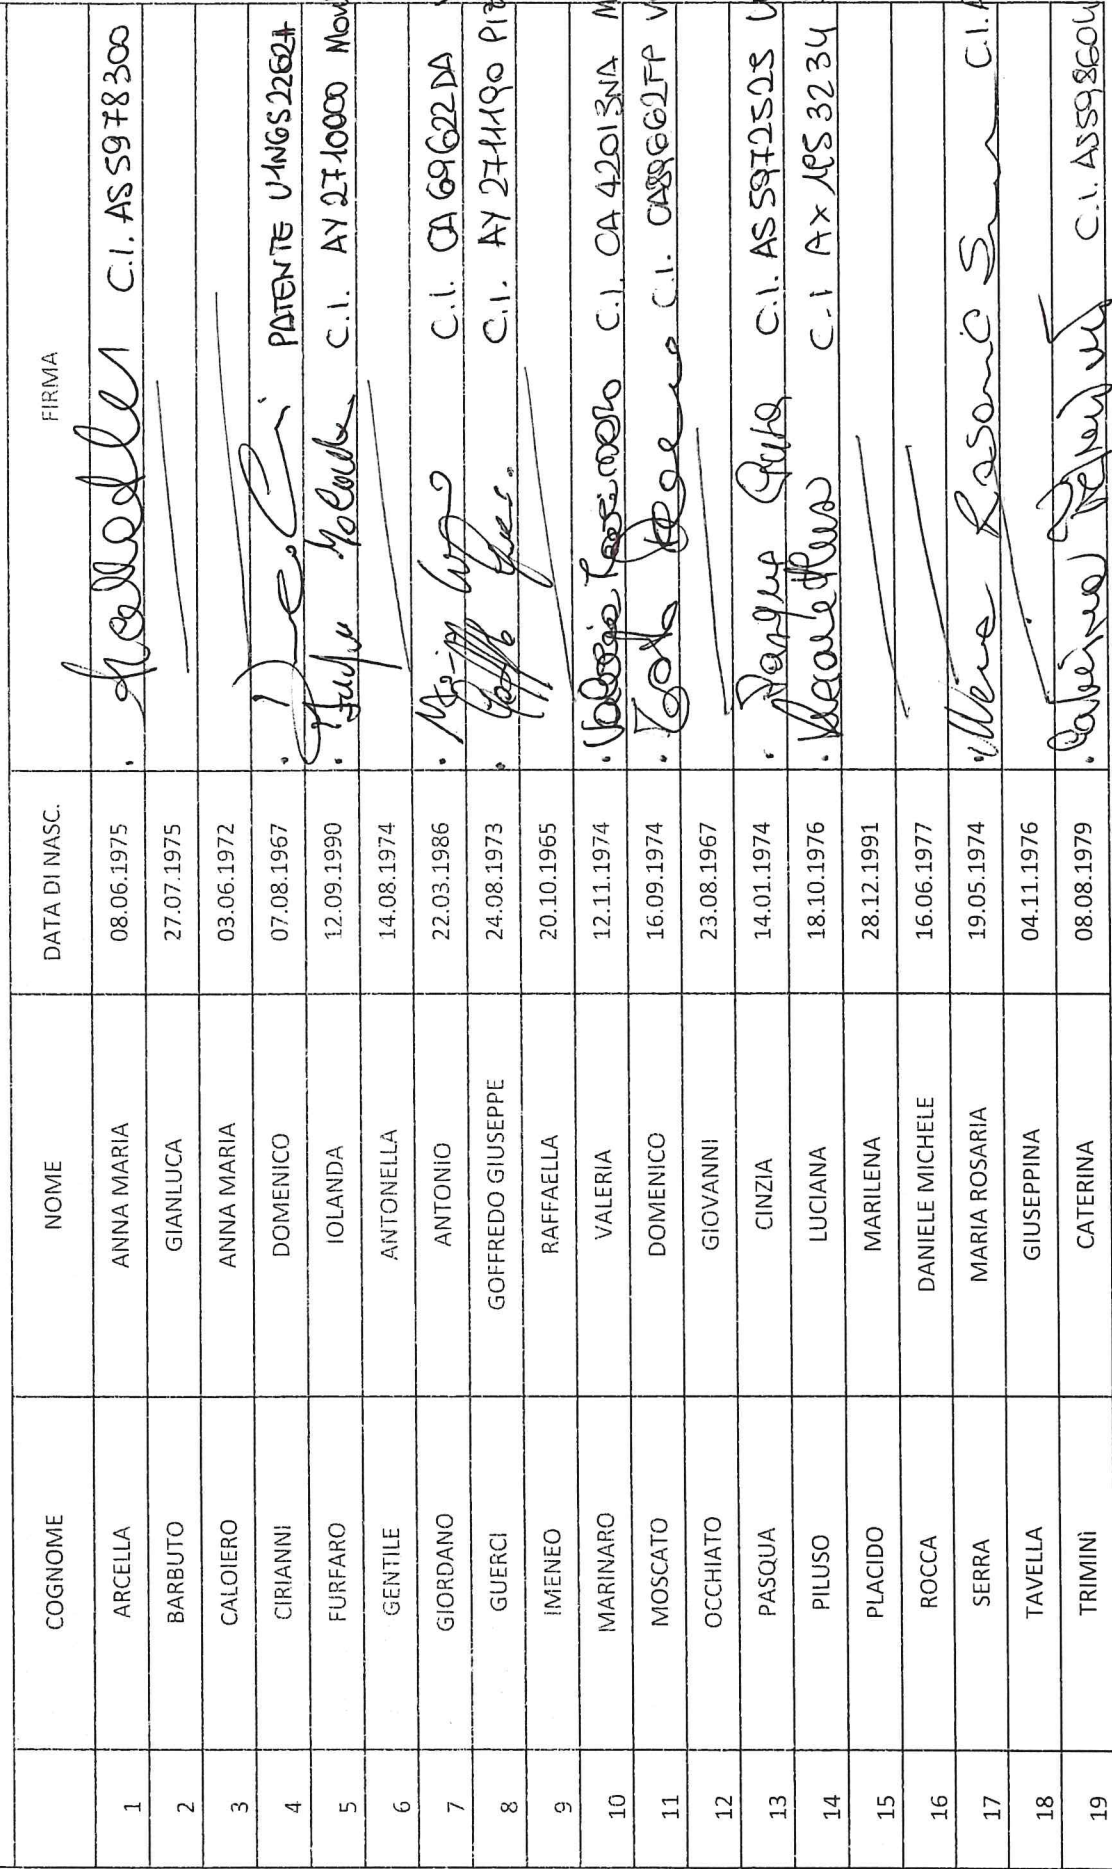 COGNOME NOME DATA DI NASC. FIRMA
1 ARCELLA ANNA MARIA 08.06.1975 C.I. AS5978300
2 BARBUTO GIANLUCA 27.07.1975
3 CALOIERO ANNA MARIA 03.06.1972
4 CIRIANNI DOMENICO 07.08.1967 PATENTE U1NG52262H
5 FURFARO IOLANDA 12.09.1990 C.I. AY2710000
6 GENTILE ANTONELLA 14.08.1974
7 GIORDANO ANTONIO 22.03.1986 C.I. CA69622DA
8 GUERCI GOFFREDO GIUSEPPE 24.08.1973 C.I. AY2711190
9 IMENEO RAFFAELLA 20.10.1965
10 MARINARO VALERIA 12.11.1974 Valeria C.I. CA42013NA M
11 MOSCATO DOMENICO 16.09.1974 C.I. V
12 OCCHIATO GIOVANNI 23.08.1967
13 PASQUA CINZIA 14.01.1974 Pasqua C.I. AS5972525
14 PILUSO LUCIANA 18.10.1976 C.I AX
15 PLACIDO MARILENA 28.12.1991
16 ROCCA DANIELE MICHELE 16.06.1977
17 SERRA MARIA ROSARIA 19.05.1974 C.I.
18 TAVELLA GIUSEPPINA 04.11.1976
19 TRIMINI CATERINA 08.08.1979 Caterina C.I.